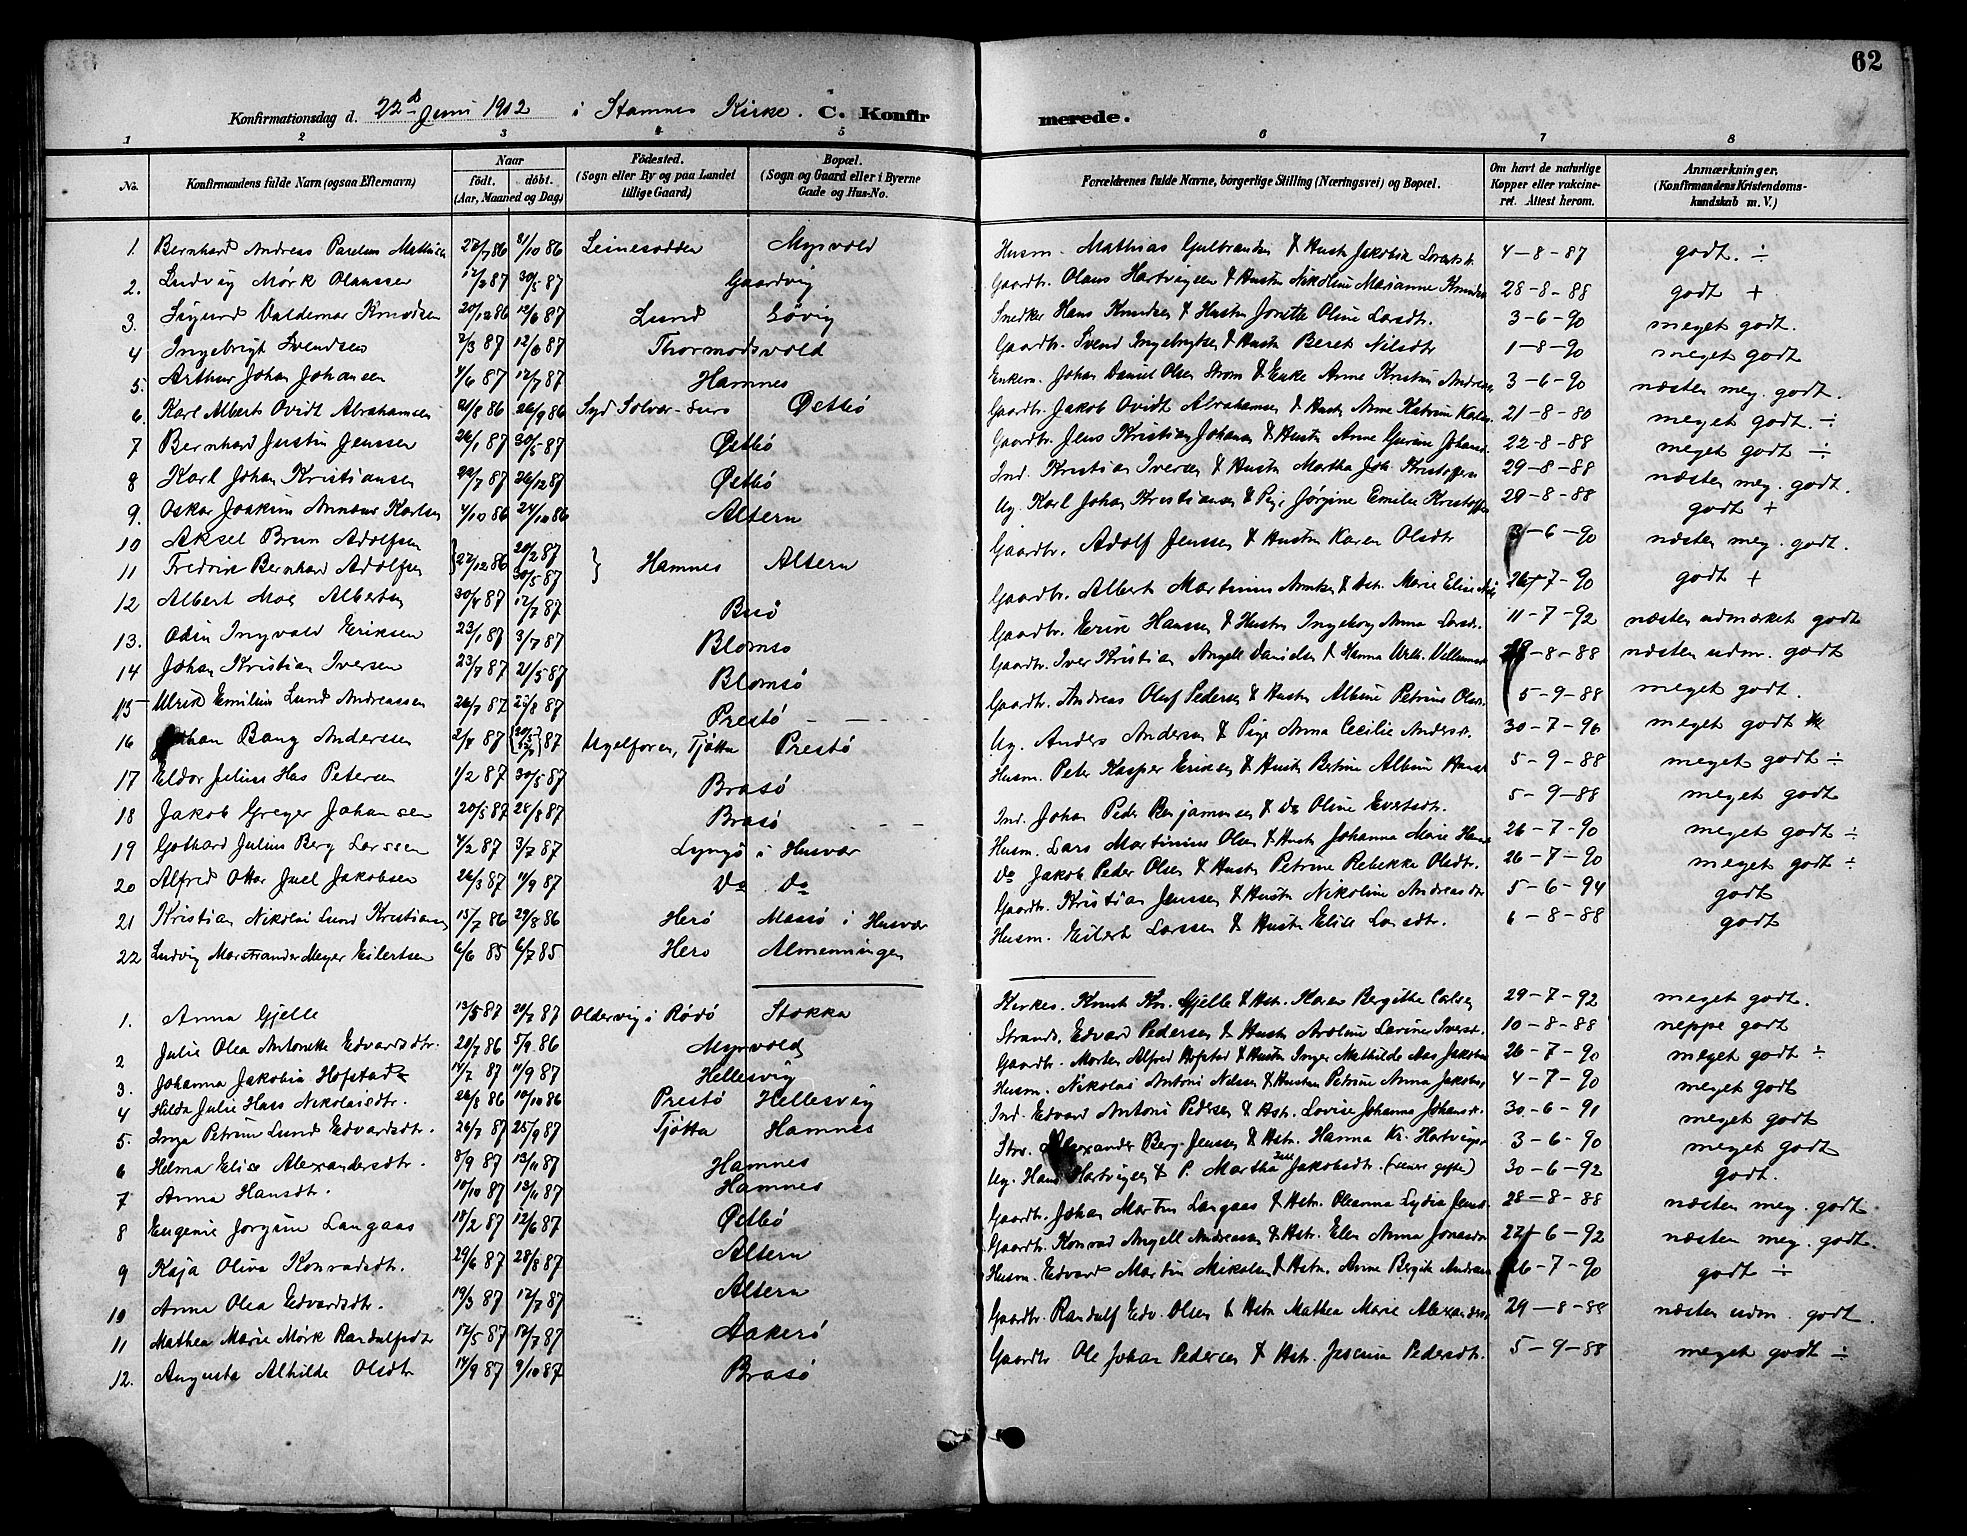 62
Konfirmationsdag d. 22d Juni 1902 i Stamnes Kirke. C. Konfirmerede.
1 2 3 4 5 6 7 8
No. Konfirmandens fulde Navn (ogsaa Efternavn) Naar födt. döbt. (Aar, Maaned og Dag) Födested. (Sogn eller By og paa Landet tillige Gaard) Bopæl. (Sogn og Gaard eller i Byerne Gade og Hus-No. Forældrenes fulde Navne, börgerlige Stilling (Næringsvei) og Bopæl. Om havt de naturlige Kopper eller vakcineret. Attest herom. Anmærkninger, (Konfirmandens Kristendomskundskab m. V.)
1. Bernhard Andreas Paulus Mathisen 27/7 86 8/10 86 Leinesodden Myrvold Husm. Mathias Gulbrandsen & Hustr Jakobia 4-8-87 godt. ÷
2. Ludvig Mørk Olaussen 12/2 87 30/5 87 Gaardvig Gaardbr. Olaus Hartvigsen & Hustru Nikoline Marianne Knudsd 28-8-88 godt +
3. Sigurd Valdemar Knudsen 20/12 86 12/6 87 Lund Søvig Snedker Hans Knudsen & Hustru Jonette Oline Larsdtr. 3-6-90 meget godt.
4 Ingebrigt Svendsen 2/3 87 12/6 87 Thormodsvold Gaardbr. Svend Ingebrigtsen & Hustr Beret Nilsdtr 1-8-90 meget godt
5. Arthur Johan Johansen 4/6 87 12/7 87 Hamnes Enkem. Johan Daniel Olsen Strøm & Enke Anne Kristine Andreas 3-6-90 næsten meg. godt.
6. Karl Albert Ovidt Abrahamsen 21/8 86 26/9 86 Syd Solvær Øetbó Gaardbr. Jakob Ovidt Abrahamsen & Hustr Anne Katrine 21-8-80 meget godt. ÷
7 Bernhard Justin Jenssen 26/1 87 30/5 87 Øetbó Gaardbr. Jens Kristian Johansen & Hustru Anne Gurine Johansd 22-8-88 meget godt ÷
8 Karl Johan Kristiansen 24/7 87 26/12 87 Øetbó Ind. Kristian Iversen & Hustru Martha Joh. Kristoffersen 29-8-88 næsten meg. godt.
9. Oskar Joakim Annæus Karlsen 4/10 86 24/10 86 Altern Ug. Karl Johan Kristiansen & Pige Jørgine Emilie Kristoffer 29-8-88 godt +
10 Aksel Brun Adolfsen 27/12 86 20/2 87 Hamnes Altern Gaardbr. Adolf Jenssen & Hustru Karen Olsdtr 3-6-90 næsten meg. godt.
11 Fredrik Bernhard Adolfsen 30/5 87
12 Albert Moe Albertsen 30/4 87 12/7 87 Busó Gaardbr. Albert Martinus & Hstr. Marie Elise 26-7-90 godt +
13. Odin Ingvald Eriksen 23/1 87 3/7 87 Blomsó Gaardbr. Erik Hanssen & Hustru Ingeborg Anna Larsd. 11-7-92 næsten udmærket godt
14 Johan Kristian Iversen 23/7 87 21/5 87 Blomsó Gaardbr. Iver Kristian Angell Danielsen & Hanna Wilh. 29-8-88 næsten udm. godt
15 Ulrik Emilius Lund Andreassen 26/7 87 27/8 87 Prestó Gaardbr. Andreas Oluf Pedersen & Hustru Albine Petrine Olsd. 5-9-88 meget godt.
16 Johan Bang Anderssen 2/4 87 {20/5 } 87 Ugelforen, Tjøtta Prestó Ug. Anders Andersen & Pige Anna Cecilie Andersd. 30-7-96 meget godt
17 Eldor Julius Has Petersen 1/2 87 30/5 87 Brasó Husm. Peter Kasper Eriksen & Hustr Bertine Albine Hansd 5-9-88 meget godt ÷
18 Jakob Greger Johansen 20/5 87 28/8 87 Brasó Ind. Johan Peder Benjaminsen & do Oline Evertsdtr. 5-9-88 meget godt
19 Gothard Julius Berg Larssen 4/2 87 3/7 87 Lyngó i Husvær Husm. Lars Martinius Olsen & Hustr Johanna Marie Hansd 26-7-90 meget godt ÷
20 Alfred Ottar Juel Jakobsen 26/3 87 11/9 87 Do Do Do Jakob Peder Olsen & Hustr Petrine Rebekke Olsdtr. 26-7-90 meget godt ÷
21 Kristian Nikolai Lund Kristiansen 15/7 86 29/8 86 Heró Massó i Husvær Gaardbr. Kristian Jenssen & Hustru Nikoline Andreasdtr 5-6-94 godt
22 Ludvig Marstrander Meyer Eilertsen 6/6 85 6/7 85 Hero Almenningen Husm. Eilert Larssen & Hustru Elise Larsdtr. 6-8-88 godt
1. Anna Gjelle 13/5 87 20/7 87 Oldervig i Rødó Stokka Kirkes. Knut Kn. Gjelle & Hstr. Karen Bergitha Carlsen 29-7-92 meget godt.
2 Julie Olea Antonette Edvardsdtr. 20/7 86 5/9 86 Myrvold Strands. Edvard Pedersen & Hustr Karoline Lavine Iversd. 10-8-88 neppe godt
3. Johanna Jakobia Hofstad 14/7 87 11/9 87 Hellesvig Gaardbr. Morten Alfred Hofstad & Hustru Inger Mathilde Aas Jakobsen 26-7-90 meget godt ÷
4 Hilda Julie Hass Nikolaisdtr. 26/8 86 10/10 86 Prestó Hellesvig Husm. Nikolai Antoni Nilssen & Hustru Petrine Anna Jakobsd 4-7-90 meget godt
5. Inga Petrine Lund Edvardsdtr. 26/7 87 25/9 87 Tjøtta Hamnes Ind. Edvard Antoni Pedersen & Hstr. Lovise Johanna Johansd. 30-6-91 meget godt
6 Helma Elise Alexandersdtr. 8/9 87 13/11 87 Hamnes Alexander Berg Jenssen & Hstr. Hanna Kr. Hartvigsd 3-6-90 meget godt
7 Anna Hansdtr. 10/10 87 13/11 87 Hamnes Ug. Hans Hartvigsen & P. Martha Jakobsdtr. (senere gifte) 30-6-92 godt.
8 Eugenie Jorgine Langaas 18/2 87 12/6 87 Øetbó Gaardbr. Johan Martin Langaas & Hstr. Oleanna Lydia Jensd. 28-8-88 næsten meg. godt.
9 Kaja Oliva Konradsdtr. 29/6 87 28/8 87 Altern Gaardbr. Konrad Angell Andreassen & Hstr. Ellen Anna Jonasdtr 27-6-92 næsten meg. godt.
10 Anna Olea Edvardsdtr. 19/3 87 12/7 87 Altern Husm. Edvard Martin Mikalsen & Hstru. Anne Bergitte Andreasd 26-7-90 godt ÷
11 Mathea Marie Mørk Randulfsdtr 12/5 87 12/7 87 Aakeró Gaardbr. Randulf Edv. Olsen & Hstr Mathea Marie Alexandersd. 29-8-88 næsten udm. godt.
12. Augusta Alhilde Olsdtr 14/9 87 9/10 87 Brasó Gaardbr Ole Johan Pedersen & Hstr. Pedersdtr. 5-9-88 meget godt ÷